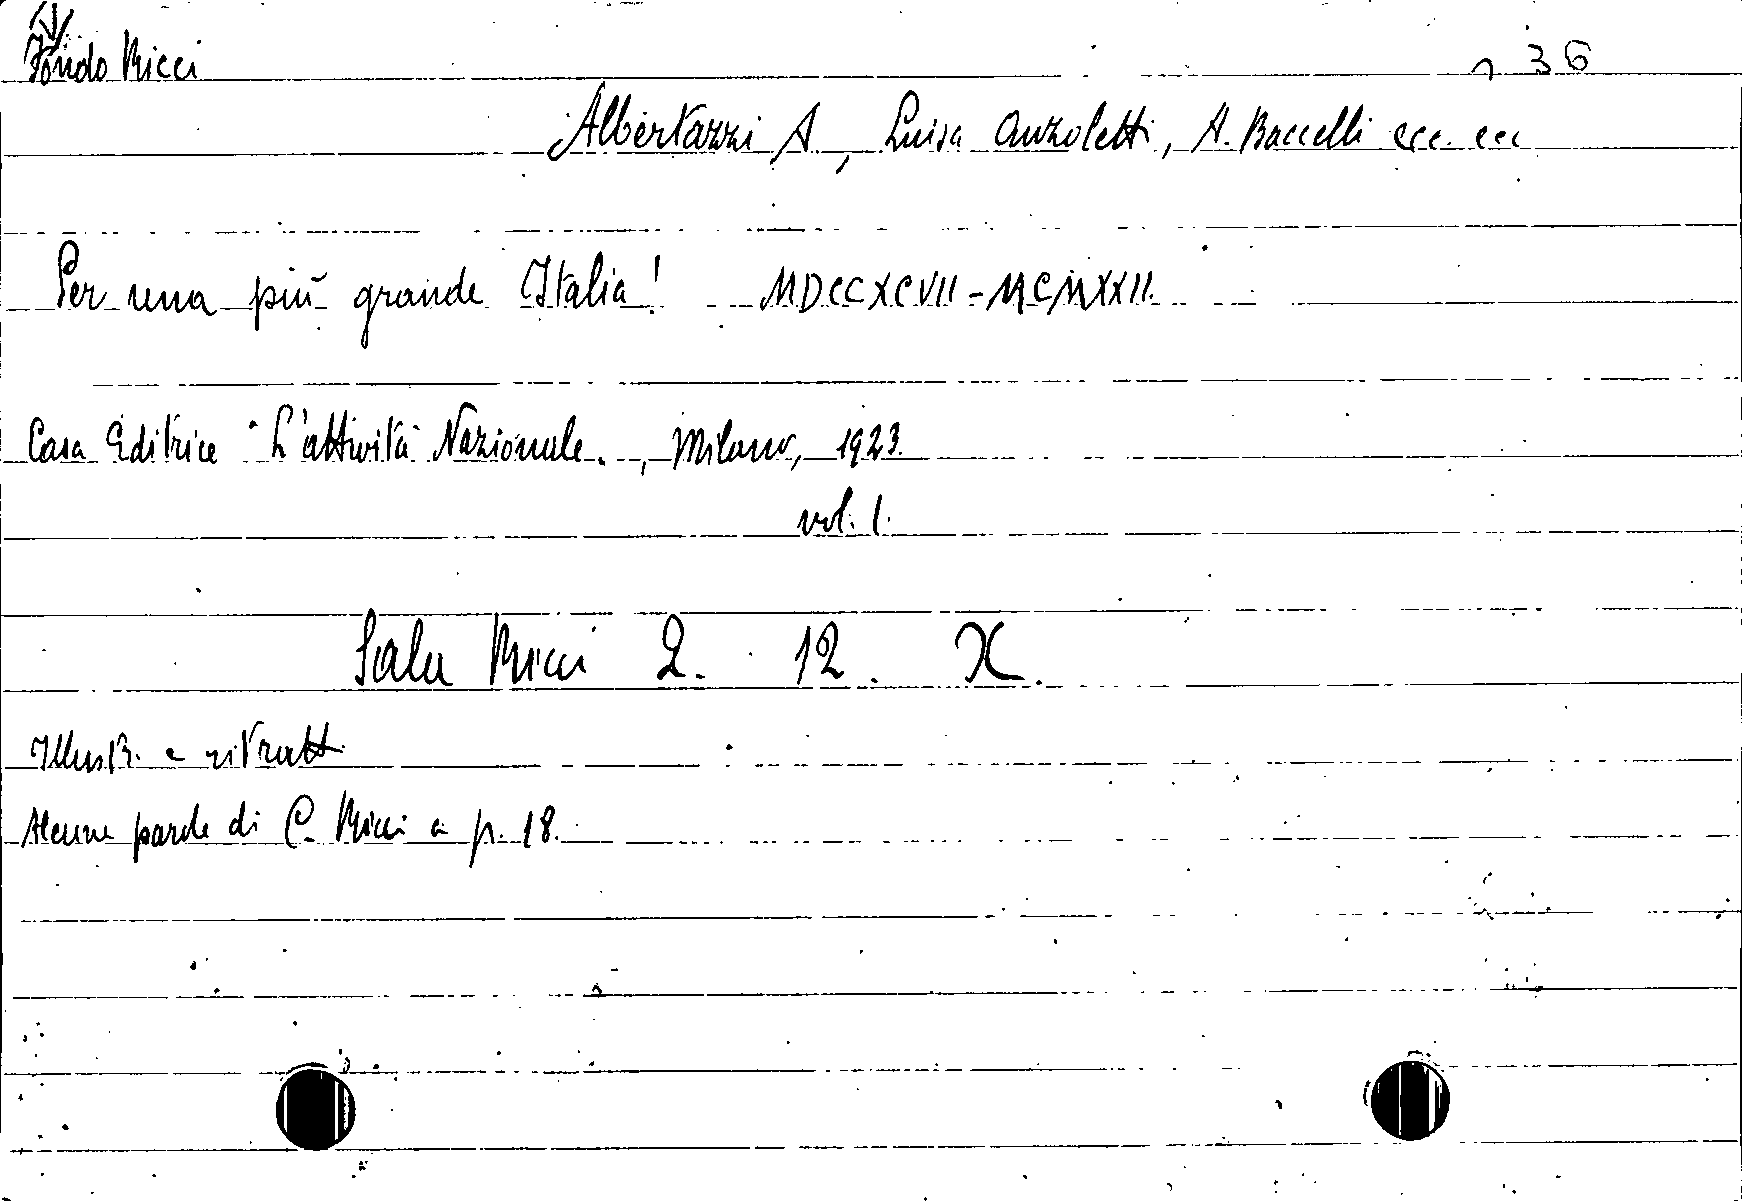 Fondo Ricci
n 36
Albertazzi A, Luisa Anzoletti, A. Baccelli ecc. ecc
Per una più grande Italia! MDCCXCVII-MCMXXII.
Casa Editrice "L'attività Nazionale", Milano, 1923.
vol. 1.
Sala Ricci 2. 12. X.
Illustr. e ritratti
Alcune parole di C. Ricci a p. 18.